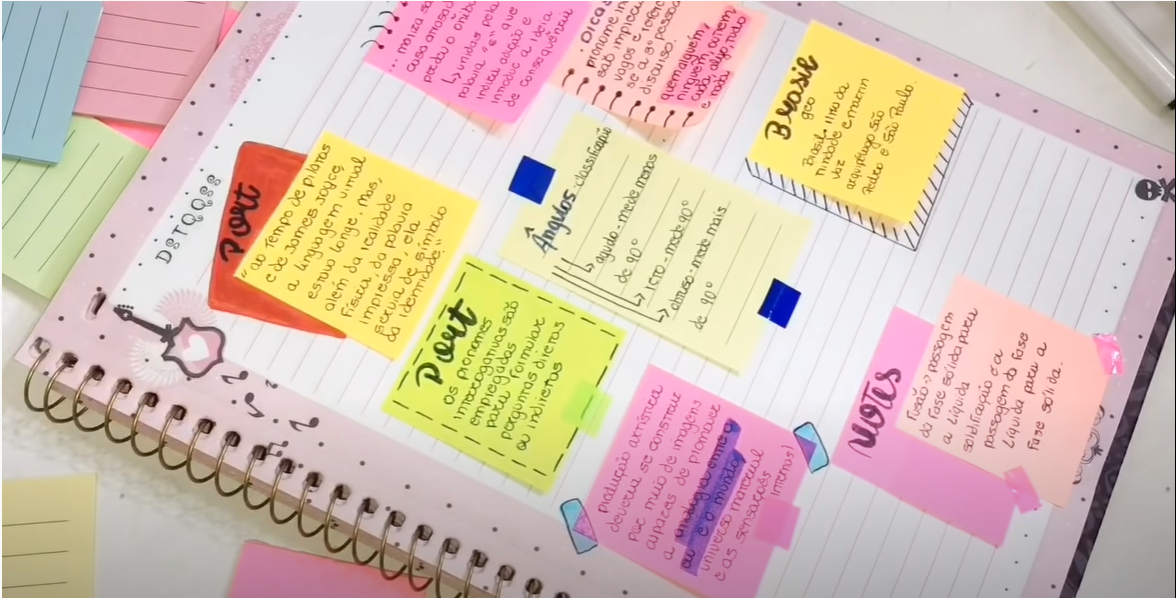 caso atrasou
perdeu o ônibus
↳ unidas pela
palavra "e" que
indica adição e
introduz a ideia
de consequência
DICAS
pronome in
vagos e refere
se a 3º pessoa
discurso.
quem, alguém,
ninguém, outrem
cada, algo, tudo
e nada
Brasil
geo
Brasil - Ilha da
rindade e marin
vaz
arquipélago são
Pedro e são Paulo.
DSTQQSS
PORT
"ao tempo de pilatos
e de James Joyce,
a linguagem virtual
estava longe. Mas,
além da realidade
física, da palavra
impressa, ela
servia de símbolo
da identidade"
Ângulos - classificação
↳ agudo - mede menos
de 90°
↳ reto - mede 90°
↳ obtuso - mede mais
de 90°
PORT
os pronomes
interrogativos são
empregados
para formular
perguntas diretas
ou indiretas
produção artística
deveria se construir
por meio de imagens
capazes de promover
a analogia entre o
eu e o mundo,
universo material
e as sensações
internas!
NOTES
Fusão → passagem
da fase sólida para
a líquida
solidificação é a
passagem da fase
líquida para a
fase sólida.